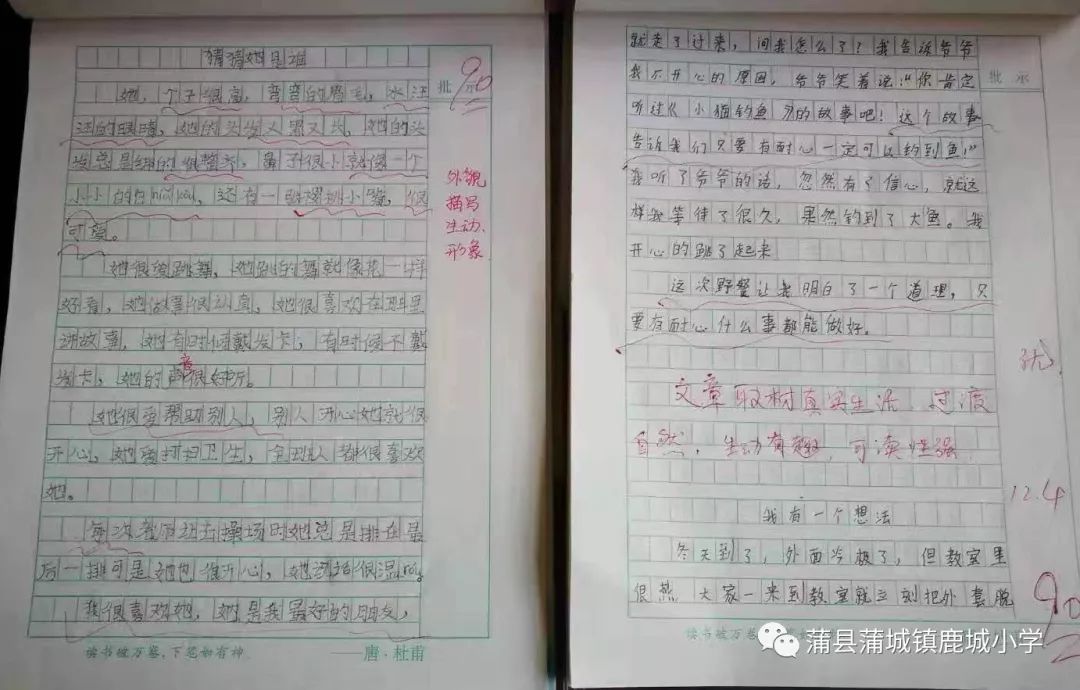 猜猜她是谁
她，个子很高，弯弯的眉毛，水汪
汪的眼睛，她的头发又黑又长，她的头
发总是绑的很整齐，鼻子很小就像一个
小小的，还有一张樱桃小嘴，很
可爱。
她很会跳舞，她的舞就像花一样
好看，她做事很认真，她很喜欢在班里
讲故事，她有时候戴发卡，有时候不戴
发卡，她的声音很好听。
她很爱帮助别人，别人开心她就很
开心，她爱打扫卫生，全班人都很喜欢
她。
每次我们站在操场时她总是排在最
后一排可是她也很开心，她说话很温róu。
我很喜欢她，她是我最好的朋友，
读书破万卷，下笔如有神。——唐·杜甫
批示
90
外貌
描写
生动、
形象
就走了过来，问我怎么了？我告诉爷爷
我不开心的原因，爷爷笑着说：“你肯定
听过《小猫钓鱼》的故事吧！这个故事
告诉我们只要有耐心一定可以钓到鱼！”
我听了爷爷的话，忽然有了信心，就这
样我等待了很久，果然钓到了大鱼。我
开心的跳了起来
这次野餐让我明白了一个道理，只
要有耐心什么事都能做好。
文章取材真实生活，过渡
自然，生动有趣，可读性强
我有一个想法
冬天到了，外面冷极了，但教室里
很热 大家一来到教室就立刻把外套脱
读书破万卷，
批示
优
12.4
90
蒲县蒲城镇鹿城小学